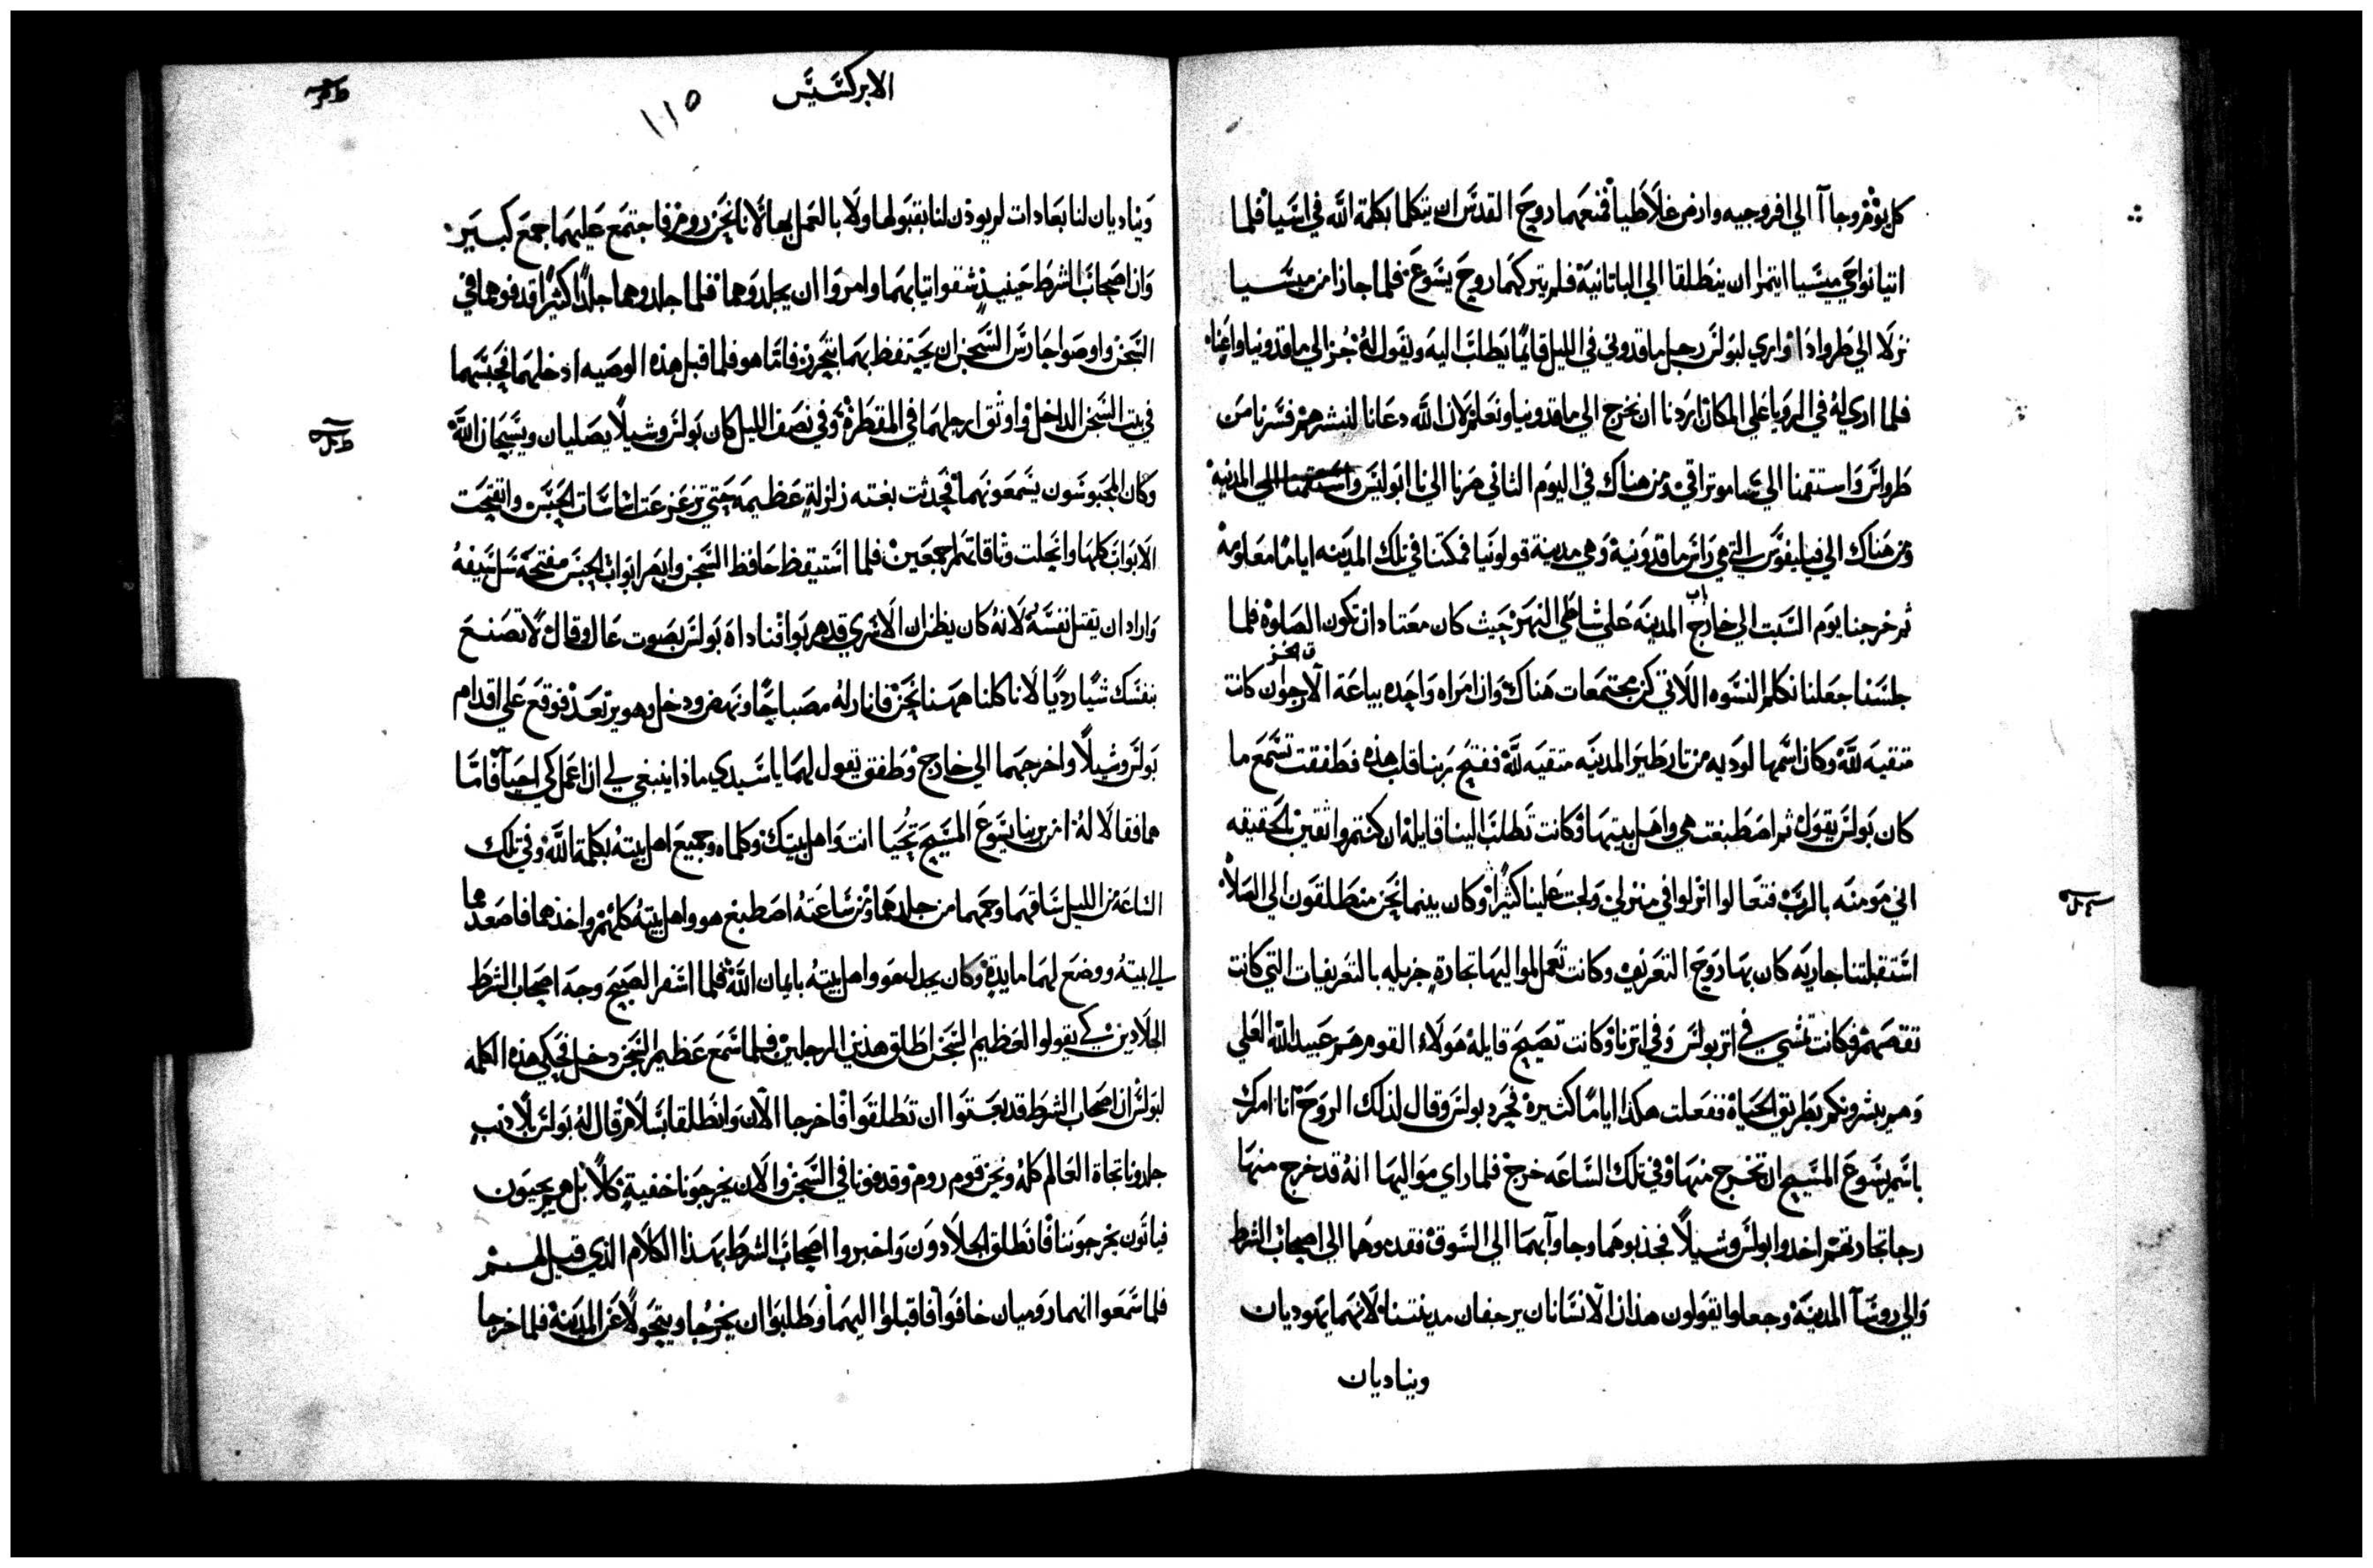 كل يوم وجاآ الي افروجيه وارض غلاطيا فمنعهما روح القدس ان يتكلما بكلمة الله في اسيا فلما
اتيا نواحي ميسيا ايتمرا ان ينطلقا الي الباتانية فلم يتركهما روح يسوع فلما جازا من ميسيا
نزلا الي طرواذا واري لبولس رجل ماقدوني في الليل قايمًا يطلب اليه ويقول له جز الي ماقدونيا واعنا
فلما اري له في الرويا علي المكان اردنا ان نخرج الي ماقدونيا ونعلم لان الله دعانا لنبشرهم فسرنا من
طرواس واستقمنا الي ساموتراقي ومن هناك في اليوم الثاني صرنا الي نابوليس واستقمنا الي المدينة
ومن هناك الي فيليفوس التي هي راس ماقدونية وهي مدينة قولونيا فمكثنا في تلك المدينه ايامًا معلومة
ثم خرجنا يوم السبت الي خارج باب المدينه علي شاطي النهر حيث كان معتاد ان تكون الصلوة فلما
جلسنا جعلنا نكلم النسوه اللاتي كن مجتمعات هناك وان امراه واحده بياعة الارجوان كانت
متقيه لله وكان اسمها لوديه من تارطير المدينه متقيه لله ففتح ربنا قلب هذه فطفقت تسمع ما
كان بولس يقول ثم اصطبغت هي واهل بيتها وكانت تطلب الينا قايلة ان كنتم واثقين بالحقيقه
اني مومنه بالرب فتعالوا انزلوا في منزلي ولجت علينا كثيرًا وكان بينما نحن منطلقون الي الصلاة
استقبلتنا جاريه كان بها روح التعريف وكانت تعمل لمواليها تجارة جزيله بالتعريفات التي كانت
تقتصهم فكانت تمشي في اثر بولس وفي اثرنا وكانت تصيح قايلة هولاء القوم هم عبيد الله العلي
وهم يبشرونكم بطريق الحياة ففعلت هكذا ايامًا كثيرة فحرد بولس وقال لذلك الروح انا امرك
باسم يسوع المسيح ان تخرج منها وفي تلك الساعه خرج فلما راي مواليها انه قد خرج منها
رجا تجارتهم اخذوا بولس وشيلا فجذبوهما وجاوآ بهما الي السوق فقدموهما الي اصحاب الشرط
والي روسآ المدينة وجعلوا يقولون هذان الانسانان يرجفان مدينتنا لانهما يهوديان
ويناديان
الابركسيس
١١٥
ويناديان لنا بعادات لم يوذن لنا بقبولها ولا بالعمل بها لاننا نحن روم فاجتمع عليهما جمع كبير
وان اصحاب الشرط حينيذ شقوا ثيابهما وامروا ان يجلدوهما فلما جلدوهما جلدًا كثيرًا قدفوهما في
السجن واوصوا حارس السجن ان يحتفظ بهما بتحرز فاما هو فلما قبل هذه الوصيه ادخلهما فحبسهما
في بيت السجن الداخل واوثق ارجلهما في المقطرة وفي نصف الليل كان بولس وشيلا يصليان ويسبحان الله
وكان المحبوسون يسمعونهما فحدثت بغته زلزلة عظيمه حتي تزعزعت اساسات الحبس وانفتحت
الابواب كلها وانحلت وثاقاتهم اجمعين فلما استيقظ حافظ السجن وابصر ابواب الحبس مفتحة سل سيفه
واراد ان يقتل نفسه لانه كان يظن ان الاسري قد هربوا فناداه بولس بصوت عال وقال لا تصنع
بنفسك شيًا رديًا لانا كلنا ههنا نحن فانار له مصباحًا ونهض ودخل وهو يرتعد فوقع علي اقدام
بولس وشيلا واخرجهما الي خارج وطفق يقول لهما يا سيدي ماذا ينبغي لي ان اعمل كي احيا فاما
هما فقالا له امن بربنا يسوع المسيح تحيا انت واهل بيتك وكلماه وجميع اهل بيته بكلمة الله وفي تلك
الساعة من الليل ساقهما وحمهما من جلدهما ومن ساعته اصطبغ هو واهل بيته كلهم واخذهما فاصعدهما
الي بيته ووضع لهما مايدة وكان يجدل هو واهل بيته بايمان الله فلما اسفر الصبح وجه اصحاب الشرط
الجلادين كي يقولوا لعظيم السجن اطلق هذين الرجلين فلما سمع عظيم السجن دخل فحكي هذه الكلمه
لبولس ان اصحاب الشرط قد بعثوا ان تطلقوا فاخرجا الان وانطلقا بسلام قال له بولس بلا ذنب
جلدونا تجاة العالم كله ونحن قوم روم وقدفونا في السجن والان يخرجونا خفية كلا بل هم يجيون
فياتون يخرجوننا فانطلق الجلادون واخبروا اصحاب الشرط بهذا الكلام الذي قيل لهم
فلما سمعوا انهما روميان خافوا فاقبلوا اليهما وطلبوا ان يخرجا ويتحولا عن المدينة فلما خرجا